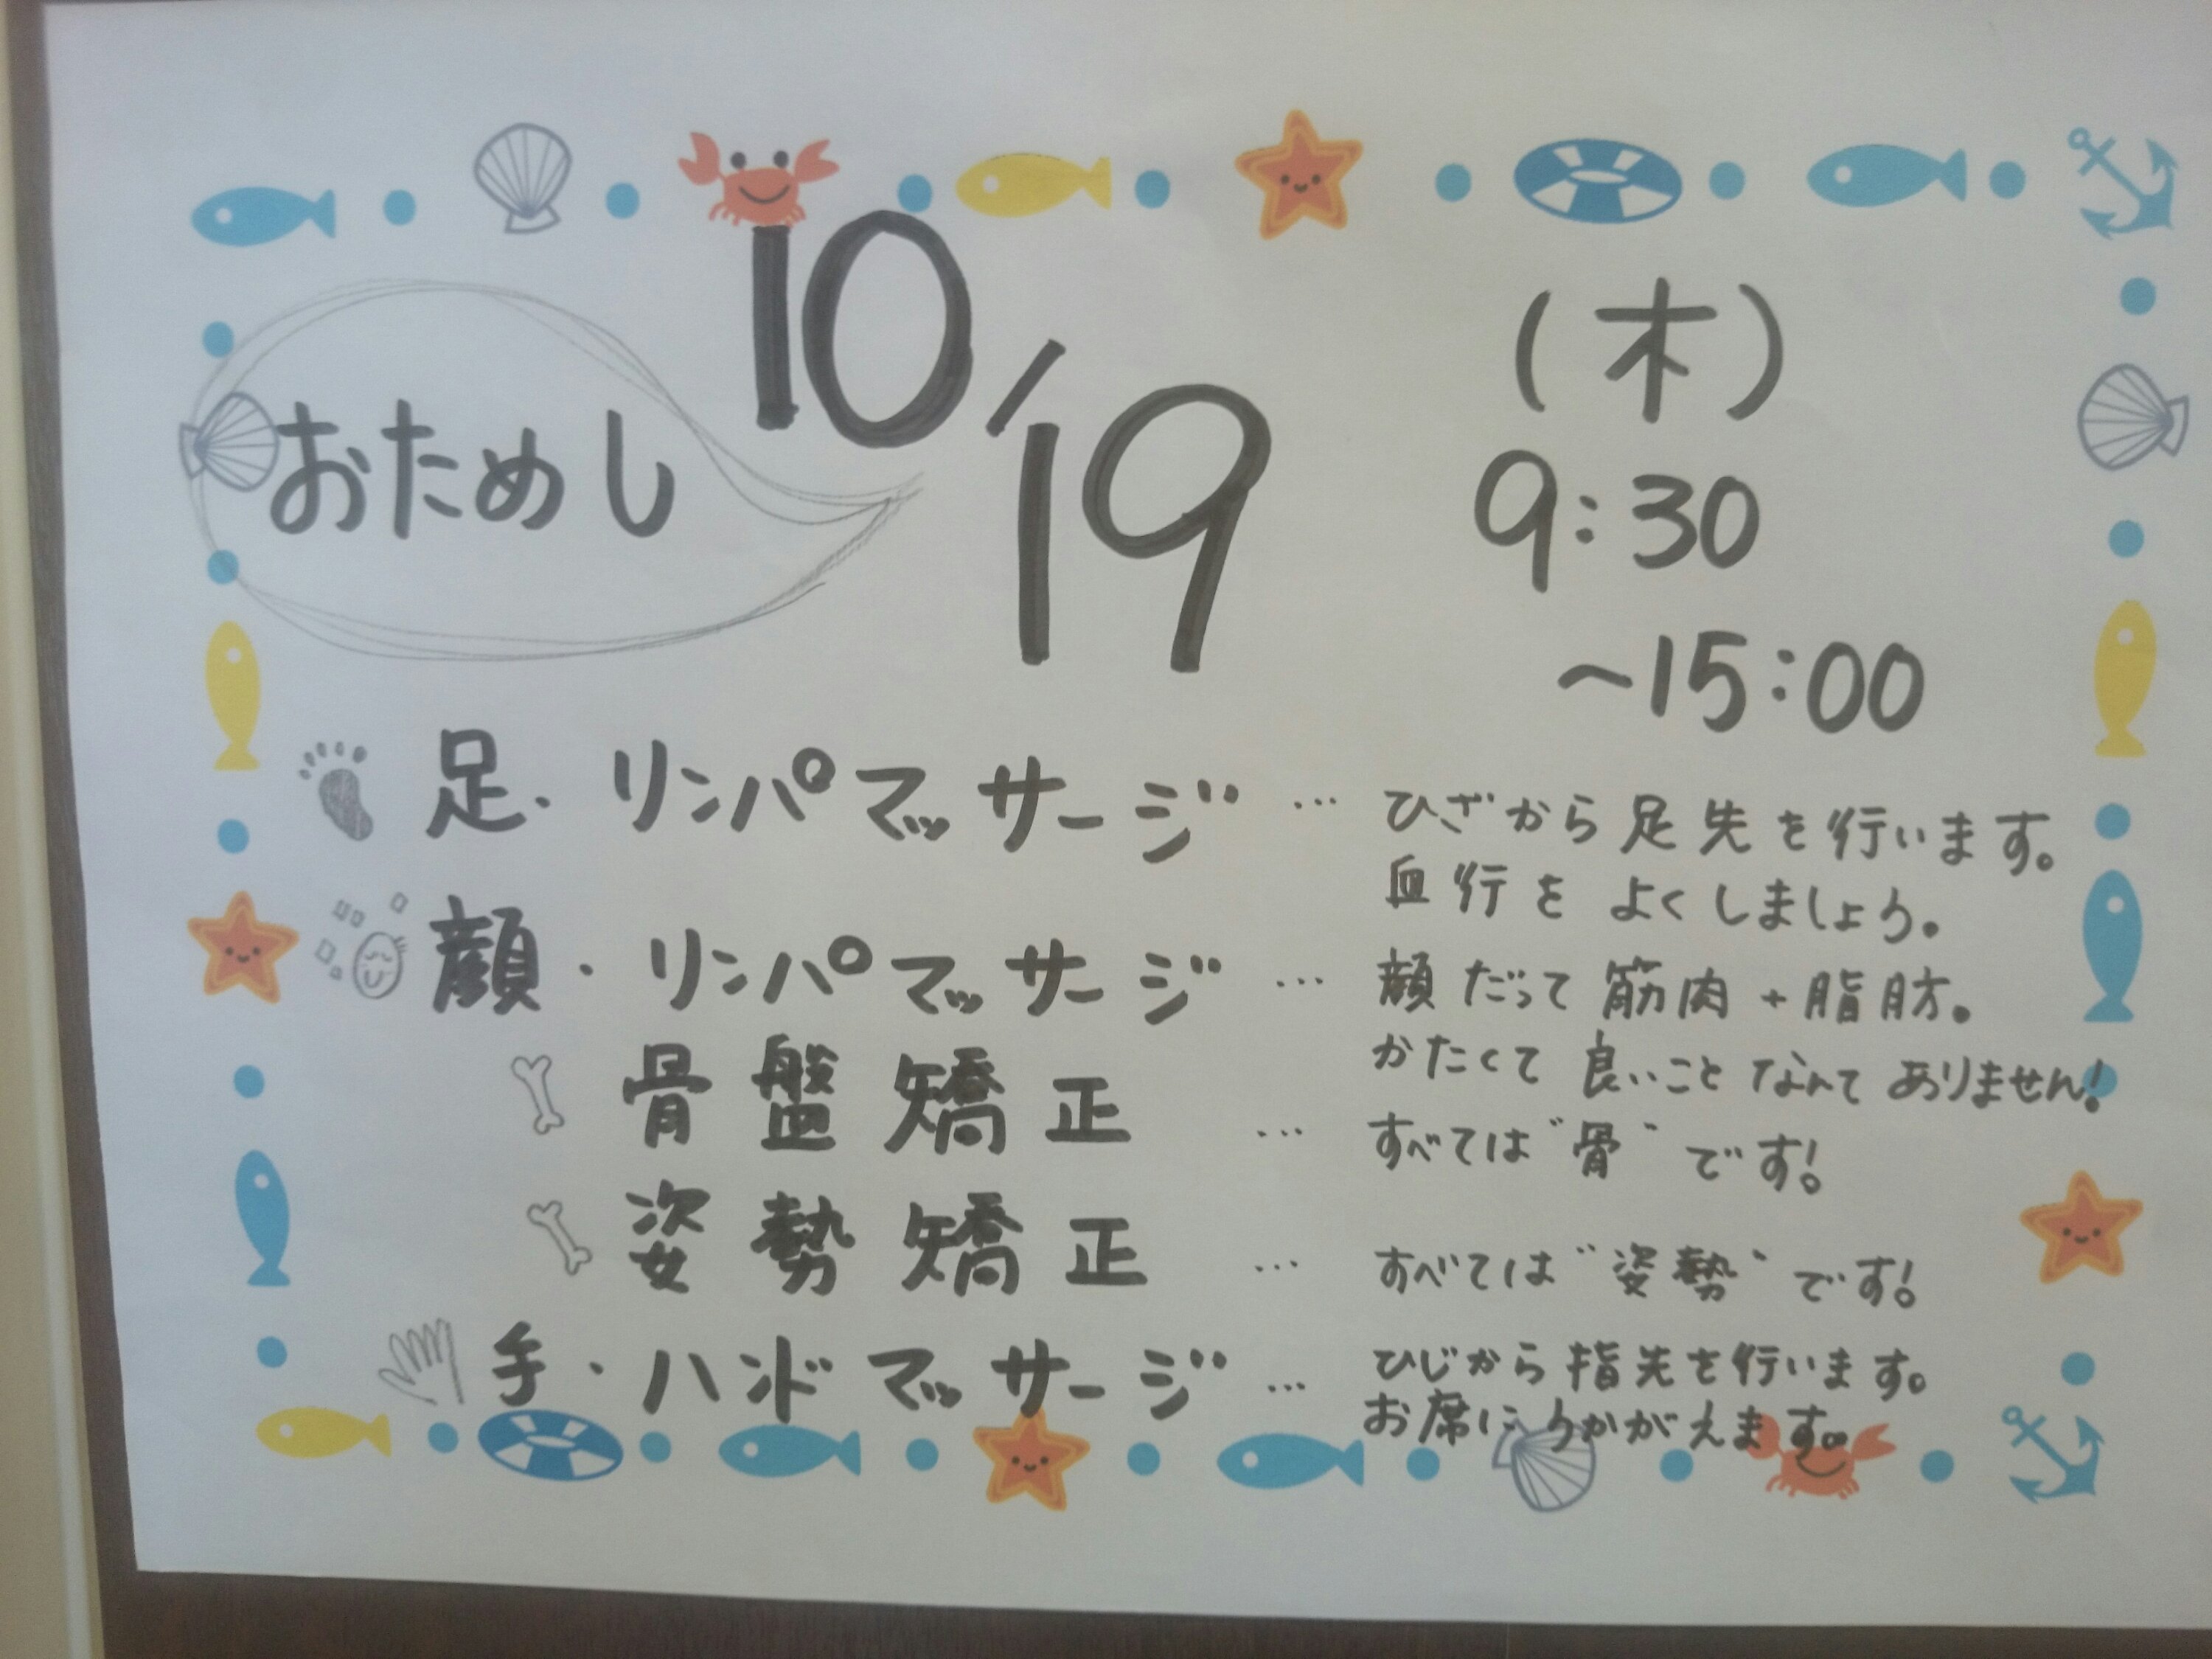 おためし
10/19
(木)
9:30
~15:00
足・リンパマッサージ … ひざから足先を行います。
血行をよくしましょう。
顔・リンパマッサージ … 顔だって筋肉+脂肪。
かたくて良いことなんてありません!
骨盤矯正 … すべては"骨"です!
姿勢矯正 … すべては"姿勢"です!
手・ハンドマッサージ … ひじから指先を行います。
お席にうかがえます。